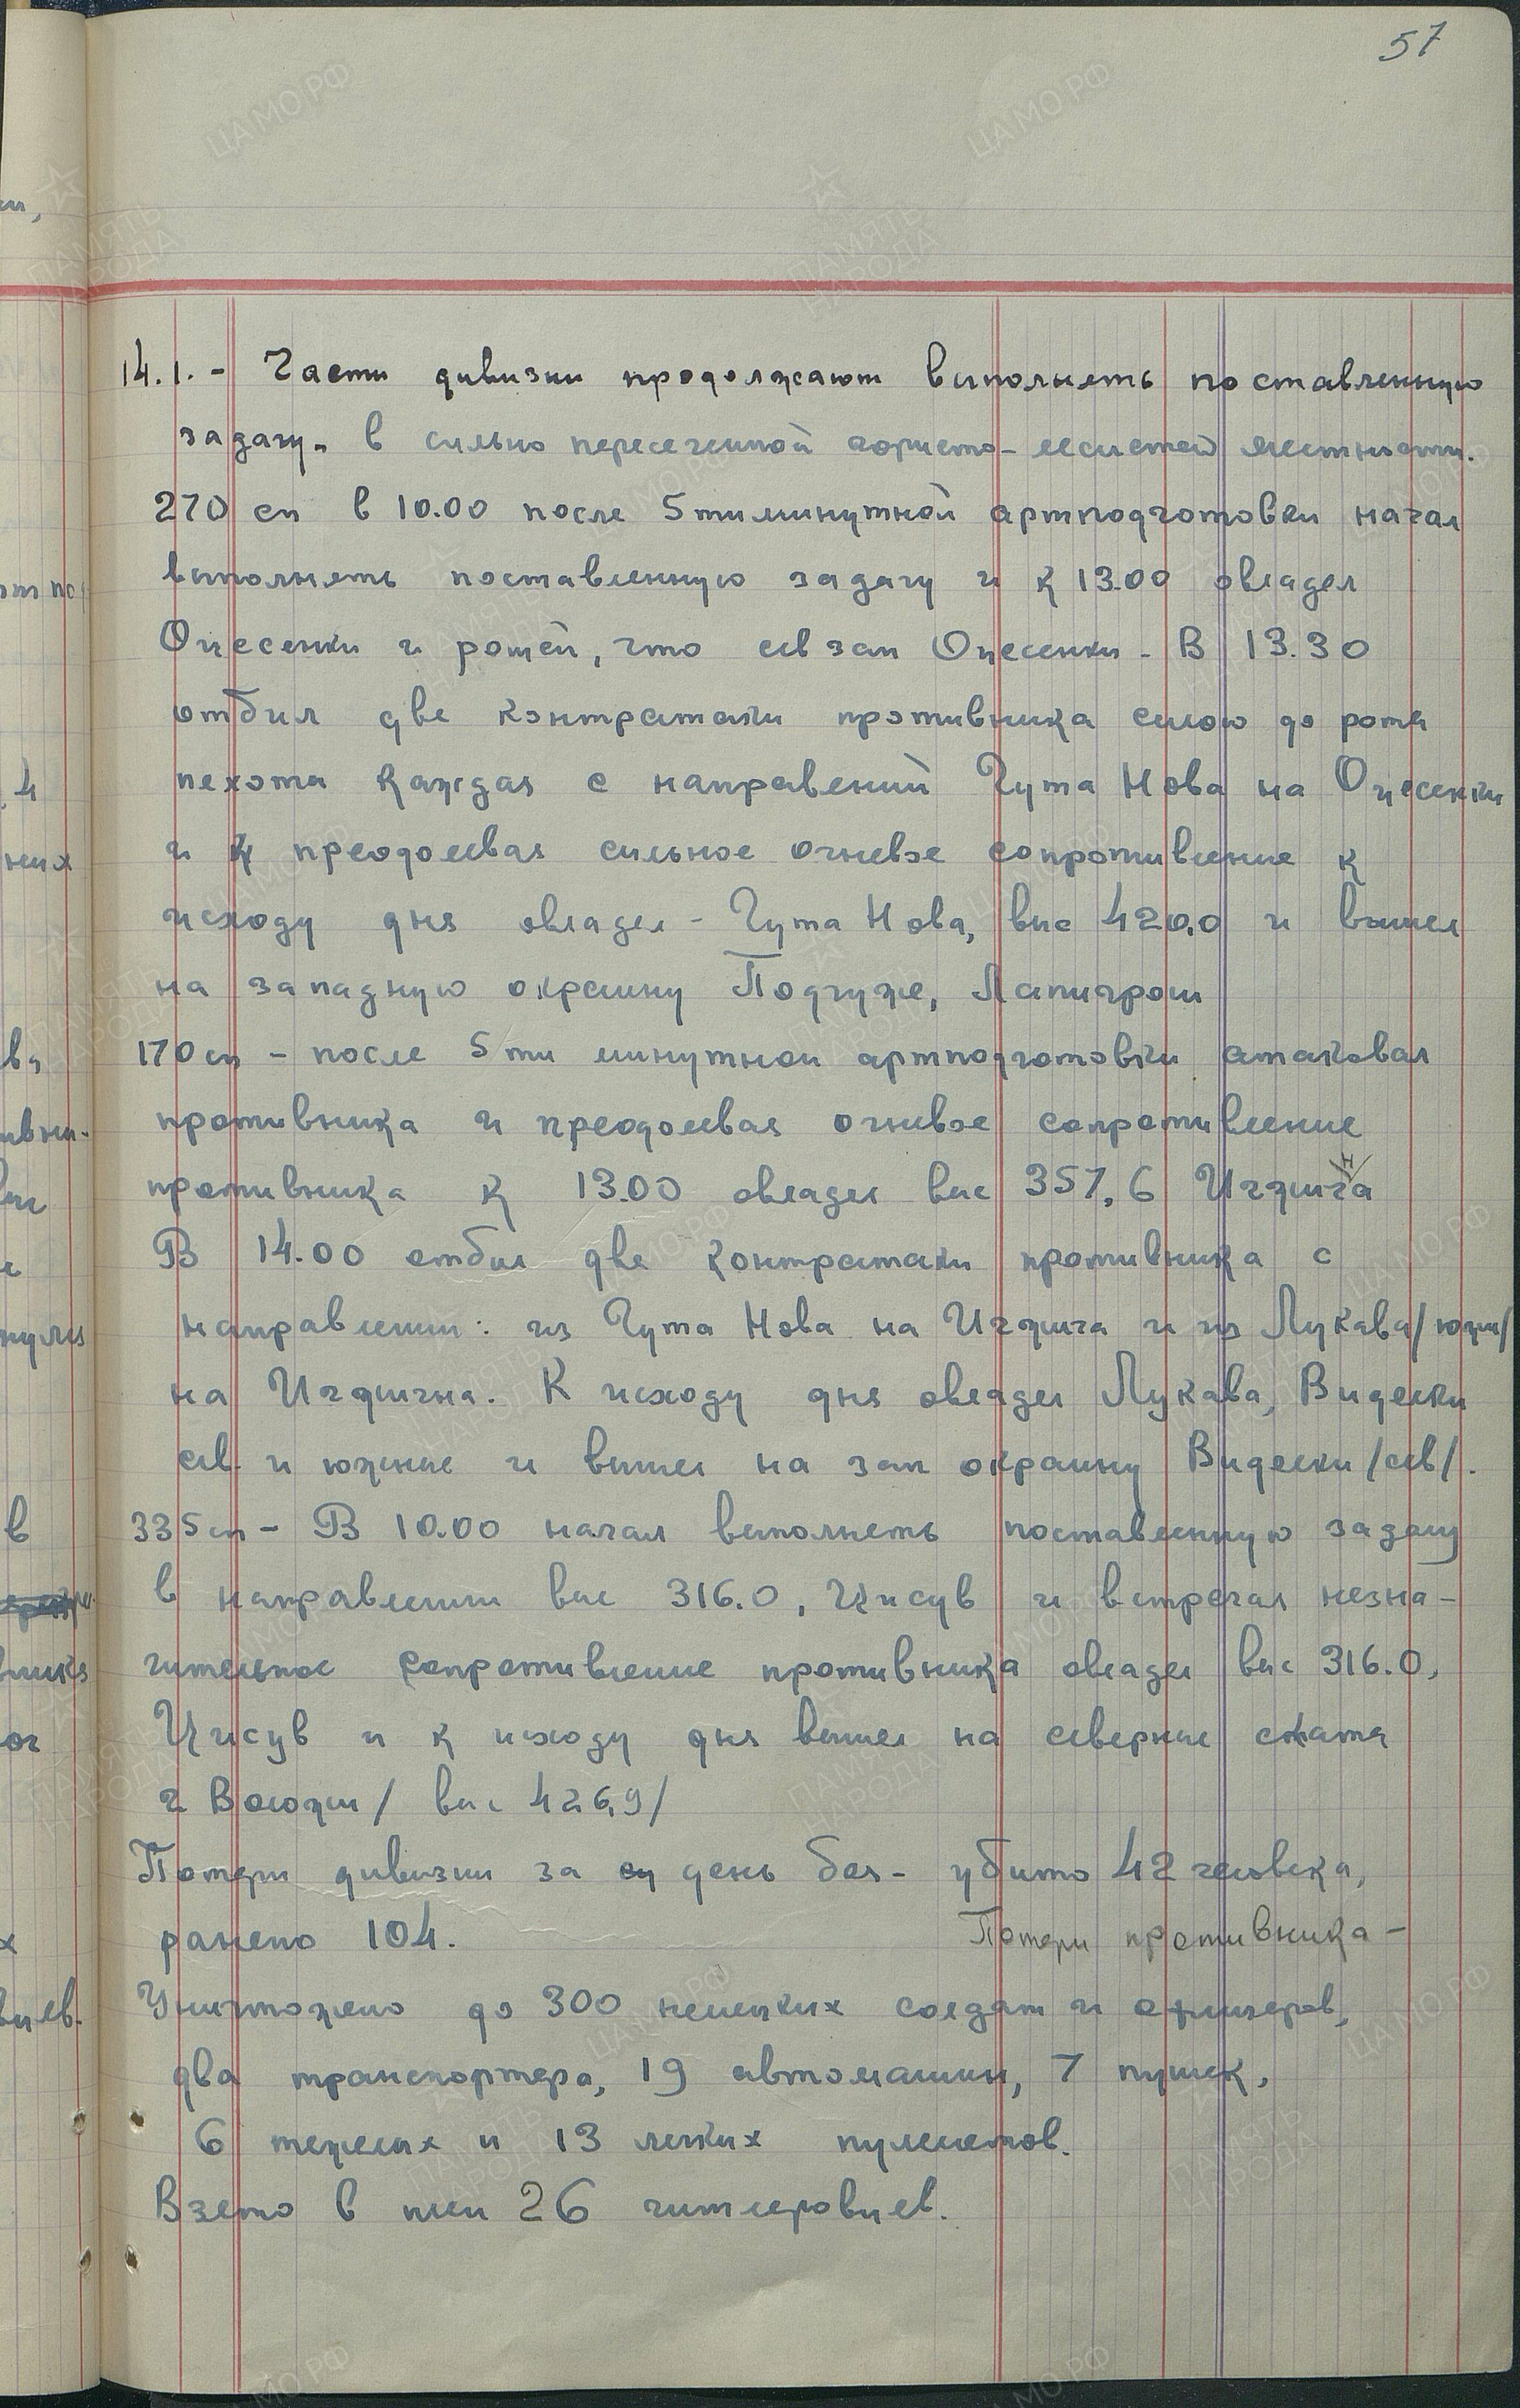 57
14.1. - Части дивизии продолжают выполнять поставленную
задачу. в сильно пересеченной гористо-лесистой местности.
270 сп в 10.00 после 5тиминутной артподготовки начал
выполнять поставленную задачу и к 13.00 овладел
Оцесенки и рощей, что сев зап Оцесенки - В 13.30
отбил две контратаки противника силою до роты
пехоты каждая с направлений Гута Нова на Оцесенки
и преодолевая сильное огневое сопротивление к
исходу дня овладел - Гута Нова, выс 420,0 и вышел
на западную окраину Подгуже, Лапигрош
170 сп - после 5ти минутной артподготовки атаковал
противника и преодолевая огневое сопротивление
противника к 13.00 овладел выс 357,6 Игжигна
В 14.00 отбил две контратаки противника с
направлении: из Гута Нова на Игжига и из Лукава/южн/
на Игжигна. К исходу дня овладел Лукава, Виделки
сев. и южные и вышел на зап окраину Виделки/сев/.
335 сп - В 10.00 начал выполнять поставленную задачу
в направлении выс 316.0, Цисув и встречая незна-
чительное сопротивление противника овладел выс 316.0,
Цисув и к исходу дня вышел на северные скаты
г Влохы/ выс 426,9/
Потери дивизии за день боя - убито 42 человека,
ранено 104. Потери противника -
Уничтожено до 300 немецких солдат и офицеров,
два транспортера, 19 автомашин, 7 пушек,
6 тяжелых и 13 легких пулеметов.
Взято в плен 26 гитлеровцев.